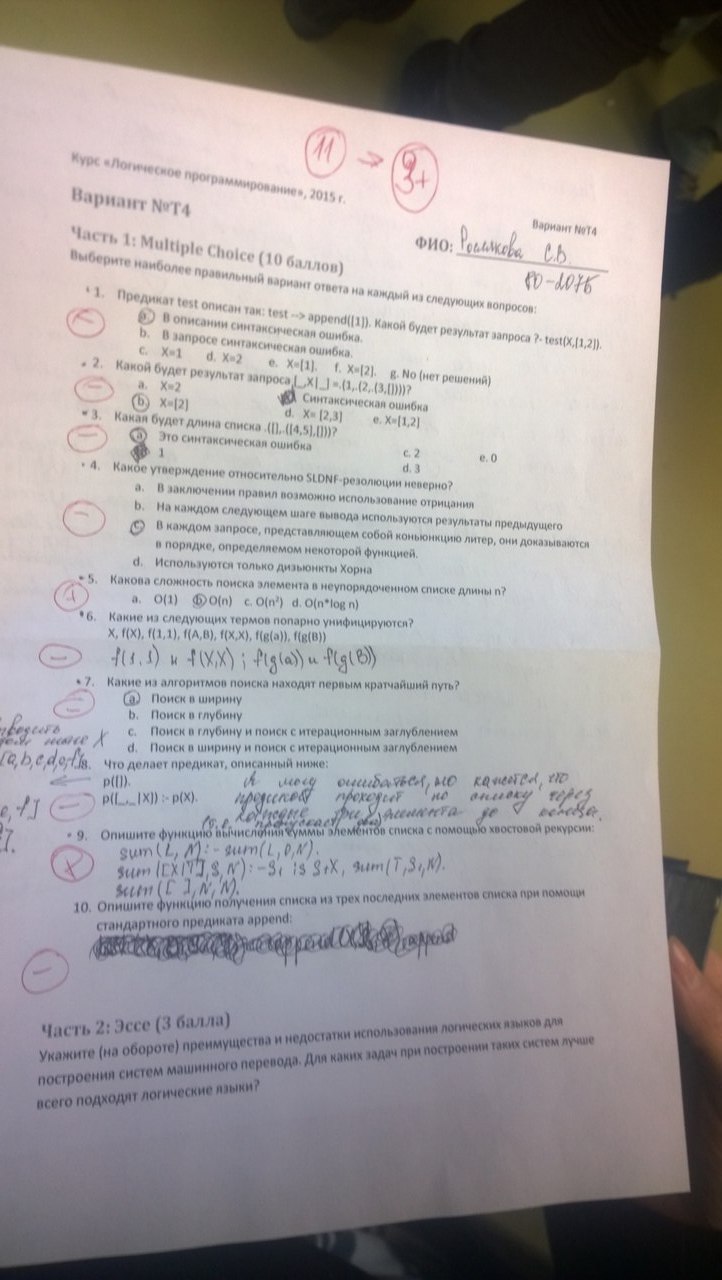 11 → 3+
Курс «Логическое программирование», 2015 г.
Вариант №Т4
Вариант №Т4
ФИО: С.В.
80-207Б
Часть 1: Multiple Choice (10 баллов)
Выберите наиболее правильный вариант ответа на каждый из следующих вопросов:
1. Предикат test описан так: test --> append([1]). Какой будет результат запроса ?- test(X,[1,2]).
a. В описании синтаксическая ошибка.
b. В запросе синтаксическая ошибка.
c. X=1 d. X=2 e. X=[1]. f. X=[2]. g. No (нет решений)
2. Какой будет результат запроса [_,X|_] =.(1,.(2,.(3,[])))?
a. X=2 Синтаксическая ошибка
b. X=[2] d. X= [2,3] e. X=[1,2]
3. Какая будет длина списка .([],.([4,5],[]))?
a Это синтаксическая ошибка c. 2 e. 0
1 d. 3
4. Какое утверждение относительно SLDNF-резолюции неверно?
a. В заключении правил возможно использование отрицания
b. На каждом следующем шаге вывода используются результаты предыдущего
c В каждом запросе, представляющем собой конъюнкцию литер, они доказываются
в порядке, определяемом некоторой функцией.
d. Используются только дизъюнкты Хорна
5. Какова сложность поиска элемента в неупорядоченном списке длины n?
a. O(1) b O(n) c. O(n²) d. O(n*log n)
6. Какие из следующих термов попарно унифицируются?
X, f(X), f(1,1), f(A,B), f(X,X), f(g(a)), f(g(B))
f(1,1) и f(X,X) ; f(g(a)) и f(g(B))
7. Какие из алгоритмов поиска находят первым кратчайший путь?
a Поиск в ширину
b. Поиск в глубину
c. Поиск в глубину и поиск с итерационным заглублением
d. Поиск в ширину и поиск с итерационным заглублением
X
[a,b,c,d,e,f]
8. Что делает предикат, описанный ниже:
p([]). Я могу ошибаться, но кажется, что
p([_,_|X]) :- p(X). предикат проходит по списку через
каждые три элемента до конца.
9. Опишите функцию вычисления суммы элементов списка с помощью хвостовой рекурсии:
sum(L, N):-sum(L,0,N).
sum([X|T],S,N):-S₁ is S+X, sum(T,S₁,N).
sum([ ],N,N).
10. Опишите функцию получения списка из трех последних элементов списка при помощи
стандартного предиката append:
Часть 2: Эссе (3 балла)
Укажите (на обороте) преимущества и недостатки использования логических языков для
построения систем машинного перевода. Для каких задач при построении таких систем лучше
всего подходят логические языки?